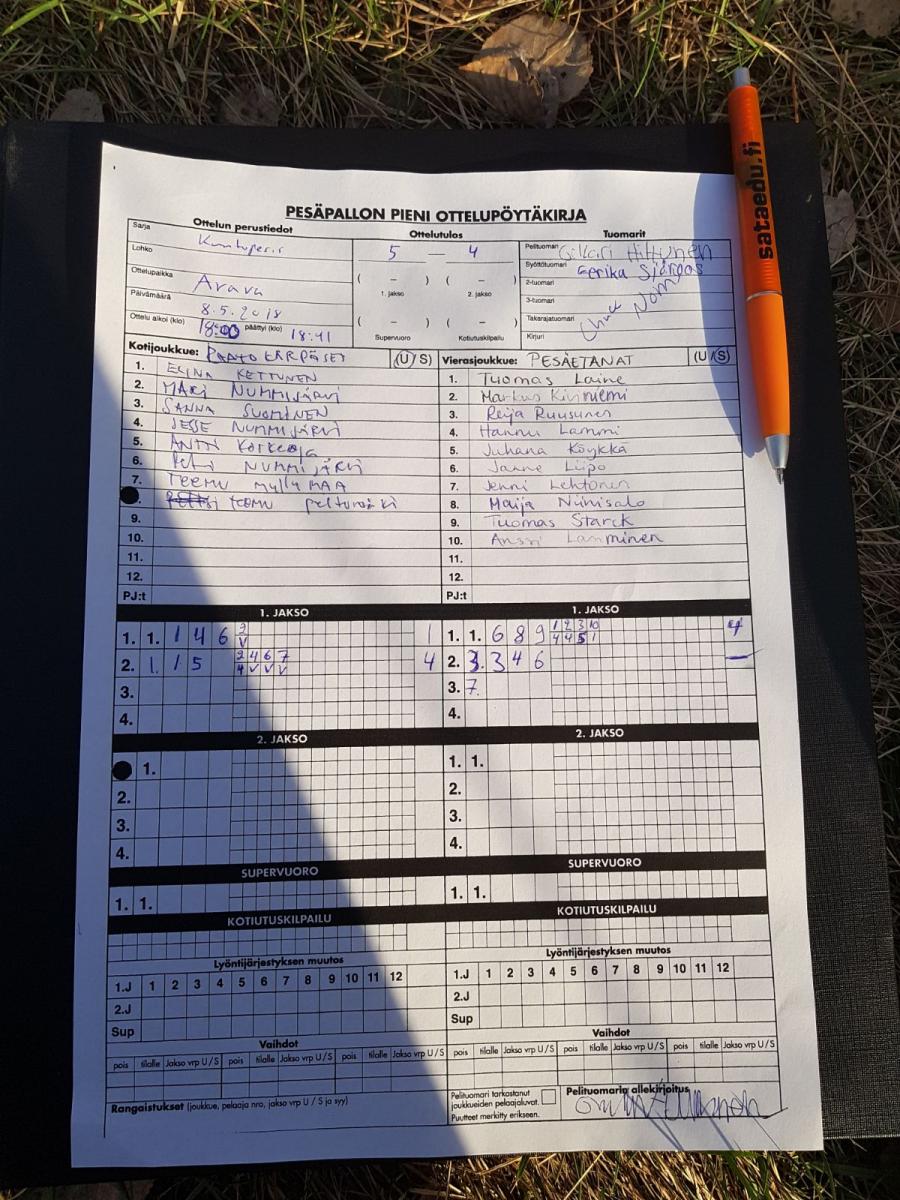 sataedu.fi
PESÄPALLON PIENI OTTELUPÖYTÄKIRJA
Ottelun perustiedot
Ottelutulos
Tuomarit
Sarja
Lohko
Ottelupaikka Arava
Päivämäärä 8.5.2018
Ottelu alkoi (klo) 18:00 päättyi (klo) 18:41
5 — 4
( – ) ( – )
1. jakso 2. jakso
( – )
Supervuoro Kotiutuskilpailu
Pelituomari Hiltunen
Syöttötuomari Eerika
2-tuomari
3-tuomari
Takarajatuomari
Kirjuri
Kotijoukkue: KÄRPÄSET (U/S)
1. ELINA KETTUNEN
2. MARI NUMMIJÄRVI
3. SANNA SUOMINEN
4. JESSE NUMMIJÄRVI
5. ANTTI Korkeoja
6. NUMMIJÄRVI
7. TEEMU MYLLYMAA
TEEMU
9.
10.
11.
12.
PJ:t
Vierasjoukkue: PESÄETANAT (U/S)
1. Tuomas Laine
2. Markus Kinniemi
3. Reija Ruusunen
4. Hannu Lammi
5. Juhana Köykkä
6. Janne Liipo
7. Jenni Lehtonen
8. Maija Niinisalo
9. Tuomas Starck
10. Anssi Lamminen
11.
12.
PJ:t
1. JAKSO
1. 1. 1 4 6 3 V 1
2. 1. 1 5 2 4 6 7 4 V V V 4
3.
4.
1. JAKSO
1. 1. 6 8 9 1 2 3 10 4 4 5 1 4
2. 3. 3 4 6 —
3. 7.
4.
2. JAKSO
1.
2.
3.
4.
2. JAKSO
1. 1.
2.
3.
4.
SUPERVUORO
1. 1.
SUPERVUORO
1. 1.
KOTIUTUSKILPAILU
KOTIUTUSKILPAILU
Lyöntijärjestyksen muutos
1.J 1 2 3 4 5 6 7 8 9 10 11 12
2.J
Sup
Lyöntijärjestyksen muutos
1.J 1 2 3 4 5 6 7 8 9 10 11 12
2.J
Sup
Vaihdot
pois tilalle Jakso vrp U/S pois tilalle Jakso vrp U/S pois tilalle Jakso vrp U/S
Vaihdot
pois tilalle Jakso vrp U/S pois tilalle Jakso vrp U/S pois tilalle Jakso vrp U/S
Rangaistukset (joukkue, pelaaja nro, jakso vrp U / S ja syy)
Pelituomari tarkastanut
joukkueiden pelaajaluvat.
Puutteet merkitty erikseen.
Pelituomarin allekirjoitus